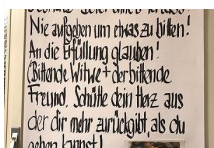 Nie aufgeben um etwas zu bitten!
An die Erfüllung glauben!
(Bittende Witwe + der bittende
Freund. Schütte dein Herz aus
der dir mehr zurückgibt, als du
geben kannst!